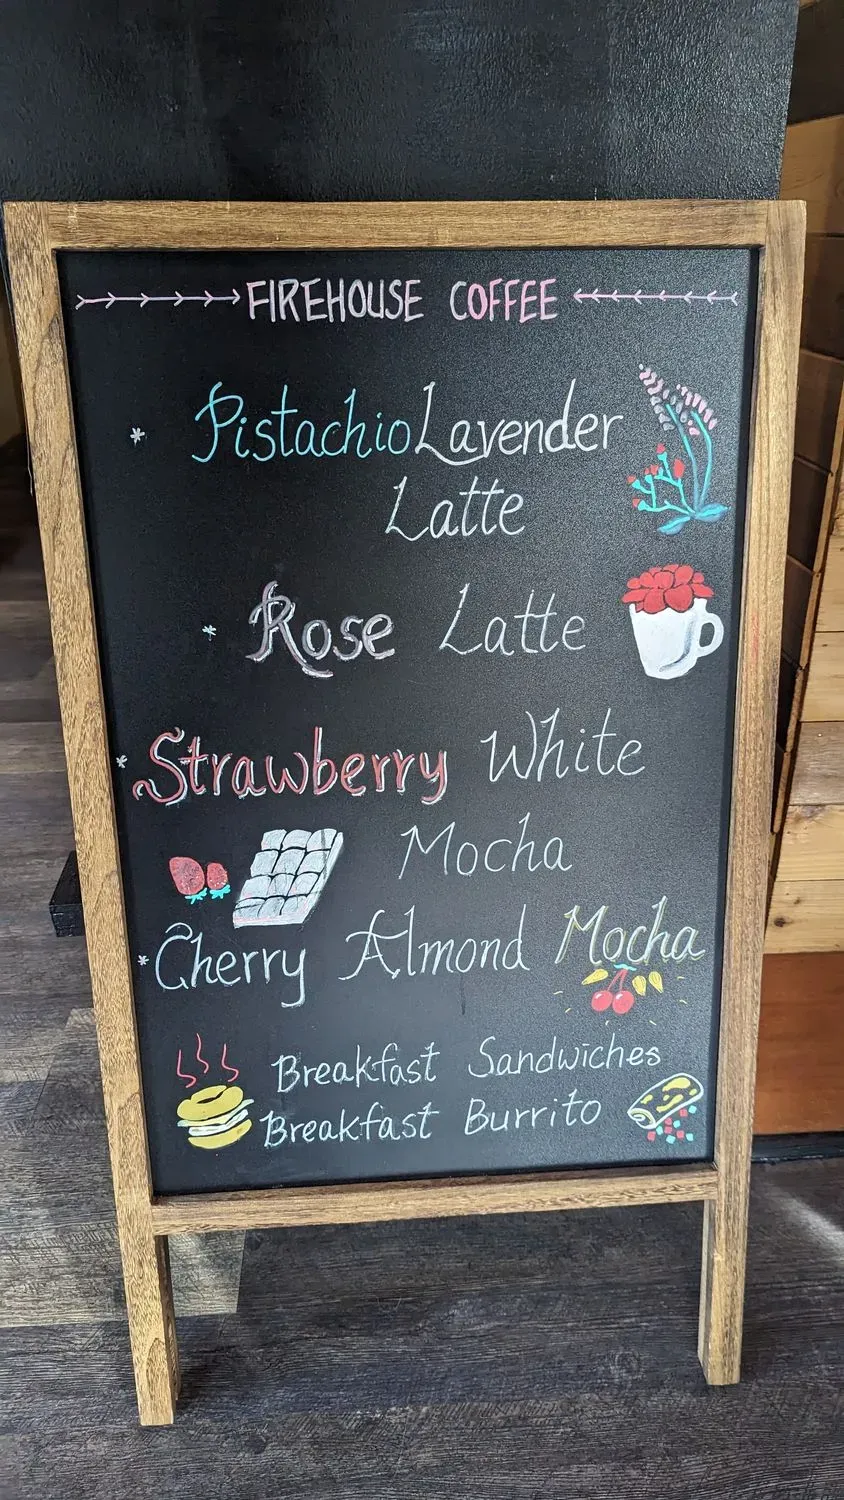 FIREHOUSE COFFEE
* Pistachio Lavender
Latte
* Rose Latte
* Strawberry White
Mocha
* Cherry Almond Mocha
Breakfast Sandwiches
Breakfast Burrito